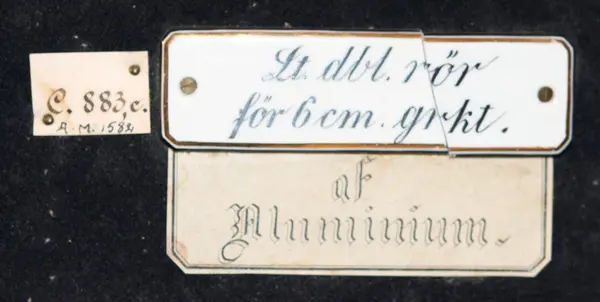 C. 883,c.
A.M. 1584
Lt. dbl. rör
för 6 cm. grkt.
af
Aluminium.